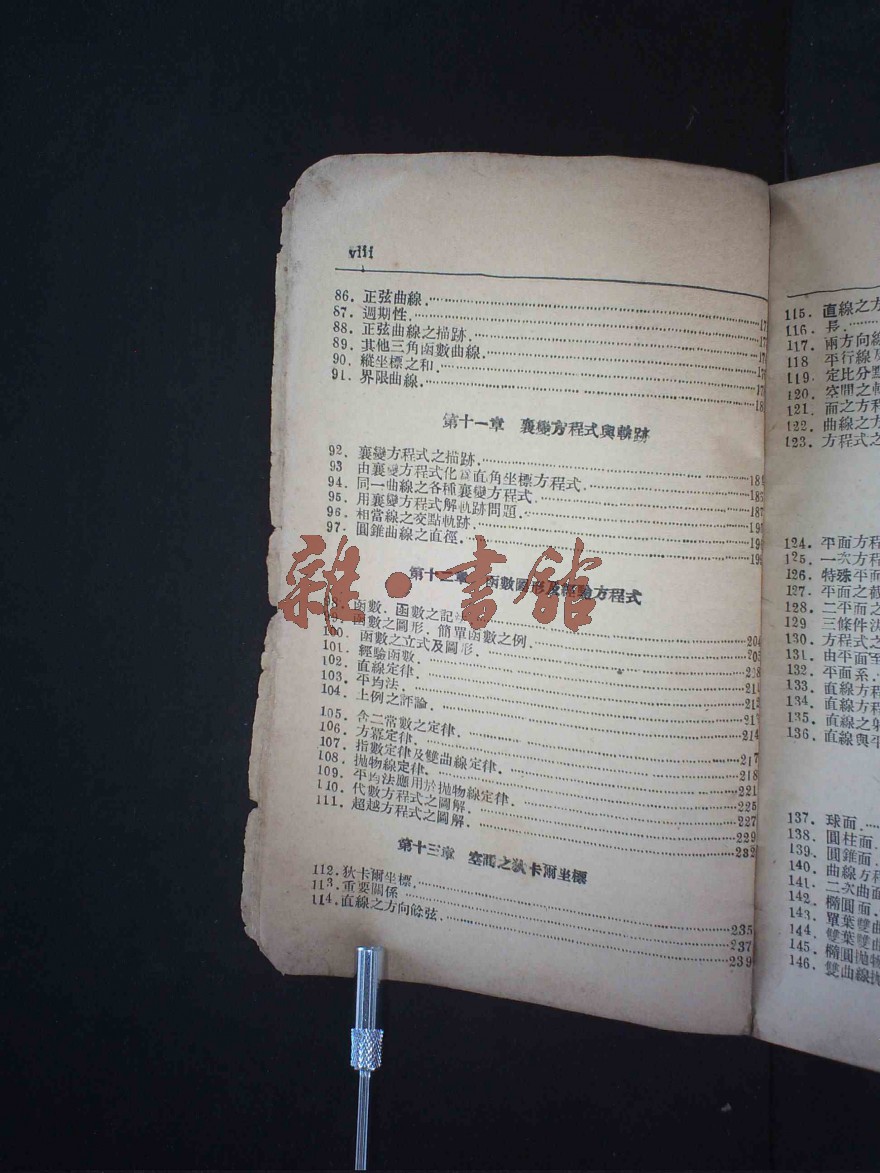 viii
86. 正弦曲線
87. 週期性
88. 正弦曲線之描跡
89. 其他三角函數曲線
90. 縱坐標之和
91. 界限曲線
第十一章 襄變方程式與軌跡
92. 襄變方程式之描跡
93 由襄變方程式化爲直角坐標方程式
94. 同一曲線之各種襄變方程式 187
95. 用襄變方程式解軌跡問題
96. 相當線之交點軌跡
97. 圓錐曲線之直徑
第十二章 函數圖形及經驗方程式
98. 函數. 函數之記 204
99. 函數之圖形. 簡單函數之例 205
100. 函數之立式及圖形 208
101. 經驗函數 211
102. 直線定律 212
103. 平均法
104. 上例之評論 214
105. 含二常數之定律 217
106. 方冪定律 218
107. 指數定律及雙曲線定律 221
108. 拋物線定律 225
109. 平均法應用於拋物線定律 227
110. 代數方程式之圖解 229
111. 超越方程式之圖解 232
第十三章 空間之狄卡爾坐標
112. 狄卡爾坐標 235
113. 重要關係 237
114. 直線之方向餘弦 239
雜·書館
115. 直線之方
116. 長
117. 兩方向線
118 平行線及
119. 定比分點
120. 空間之軌
121. 面之方程
122. 曲線之方
123. 方程式之
124. 平面方程
125. 一次方程
126. 特殊平面
127. 平面之截
128. 二平面之
129 三條件決
130. 方程式之
131. 由平面至
132. 平面系
133. 直線方程
134. 直線方程
135. 直線之射
136. 直線與平
137. 球面
138. 圓柱面
139. 圓錐面
140. 曲線方程
141. 二次曲面
142. 橢圓面
143. 單葉雙曲
144. 雙葉雙曲
145. 橢圓拋物
146. 雙曲線拋